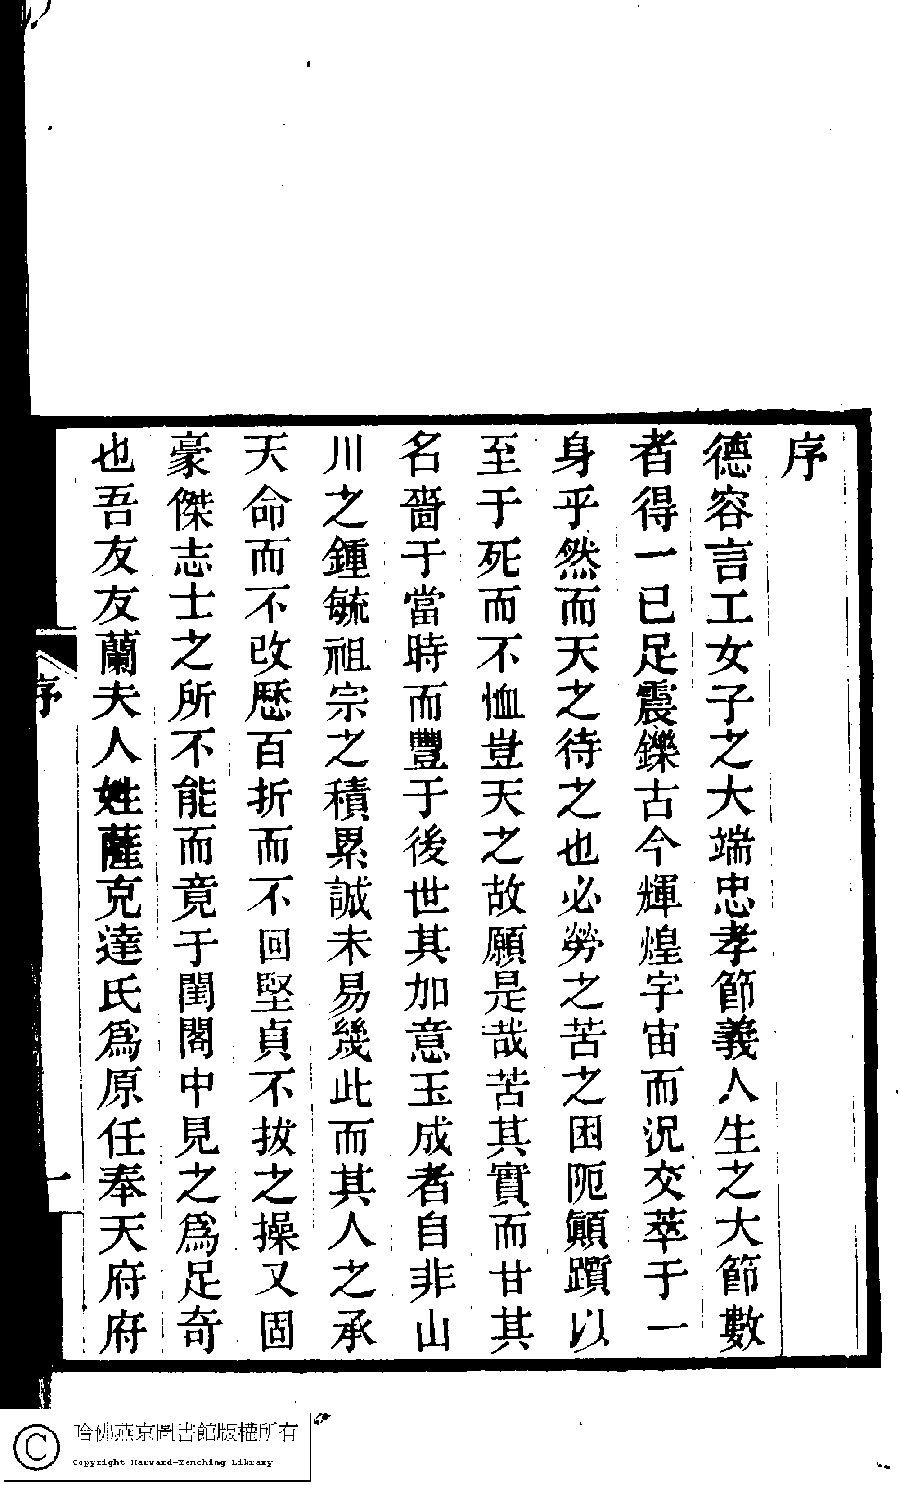 序
德容言工女子之大端忠孝節義人生之大節數
者得一已足震鑠古今輝煌宇宙而況交萃于一
身乎然而天之待之也必勞之苦之困阨顚躓以
至于死而不恤豈天之故願是哉苦其實而甘其
名嗇于當時而豐于後世其加意玉成者自非山
川之鍾毓祖宗之積累誠未易幾此而其人之承
天命而不改歷百折而不回堅貞不拔之操又固
豪傑志士之所不能而竟于閨閣中見之爲足奇
也吾友友蘭夫人姓薩克達氏爲原任奉天府府
序
一
哈佛燕京圖書館版權所有
Copyright Harvard-Yenching Library